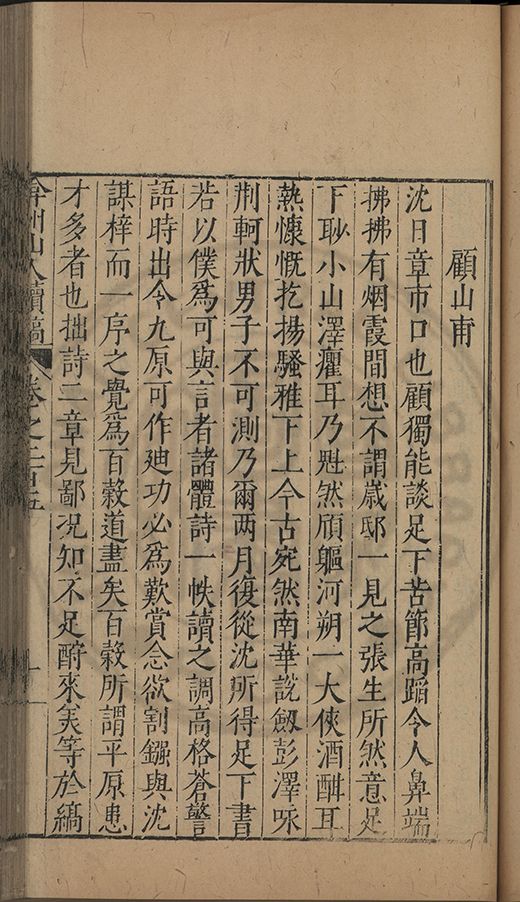 顧山甫
沈日章市口也顧獨能談足下苦節高蹈令人鼻端
拂拂有烟霞間想不謂嵗邸一見之張生所然意足
下眇小山澤癯耳乃魁然頎軀河朔一大俠酒酣耳
熱慷慨扢揚騷雅下上今古宛然南華説劔彭澤咏
荆軻狀男子不可測乃爾两月復從沈所得足下書
若以僕爲可與言者諸體詩一帙讀之調高格蒼警
語時出令九原可作廸功必爲歎賞念欲割鏹與沈
謀梓而一序之覺爲百榖道盡矣百榖所謂平原患
才多者也拙詩二章見鄙况知不足酧來美等於縞
弇州山人續稿 卷之二百五